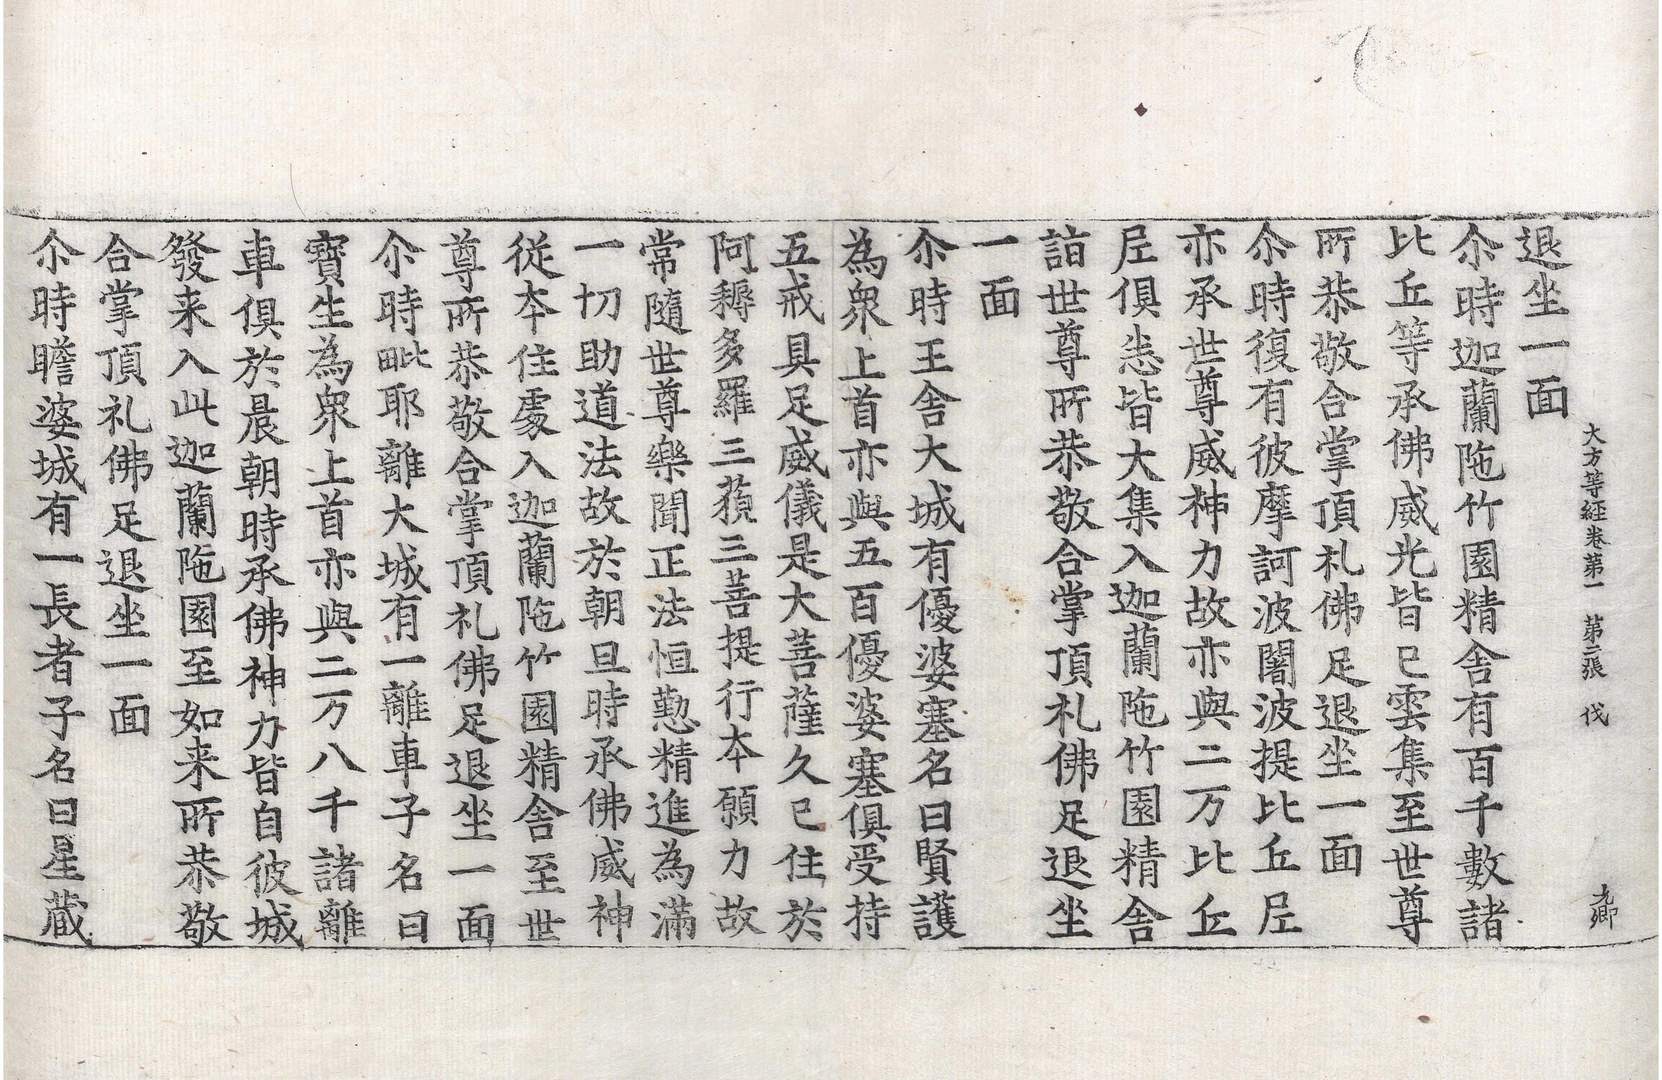 大方等経卷第一 第二張 伐 九卿
退坐一面
尒時迦蘭陁竹園精舍有百千數諸
比丘等承佛威光皆已雲集至世尊
所恭敬合掌頂礼佛足退坐一面
尒時復有彼摩訶波闍波提比丘尼
亦承世尊威神力故亦與二万比丘
尼俱悉皆大集入迦蘭陁竹園精舍
詣世尊所恭敬合掌頂礼佛足退坐
一面
尒時王舍大城有優婆塞名曰賢護
為衆上首亦與五百優婆塞俱受持
五戒具足威儀是大菩薩久已住於
阿耨多羅三藐三菩提行本願力故
常隨世尊樂聞正法恒懃精進為滿
一切助道法故於朝旦時承佛威神
從本住處入迦蘭陁竹園精舍至世
尊所恭敬合掌頂礼佛足退坐一面
尒時毗耶離大城有一離車子名曰
寶生為衆上首亦與二万八千諸離
車俱於晨朝時承佛神力皆自彼城
發来入此迦蘭陁園至如来所恭敬
合掌頂礼佛足退坐一面
尒時瞻婆城有一長者子名曰星藏